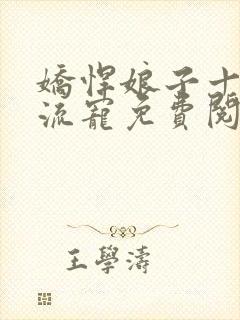 嬌悍娘子十
流寵免費閱
王學濤